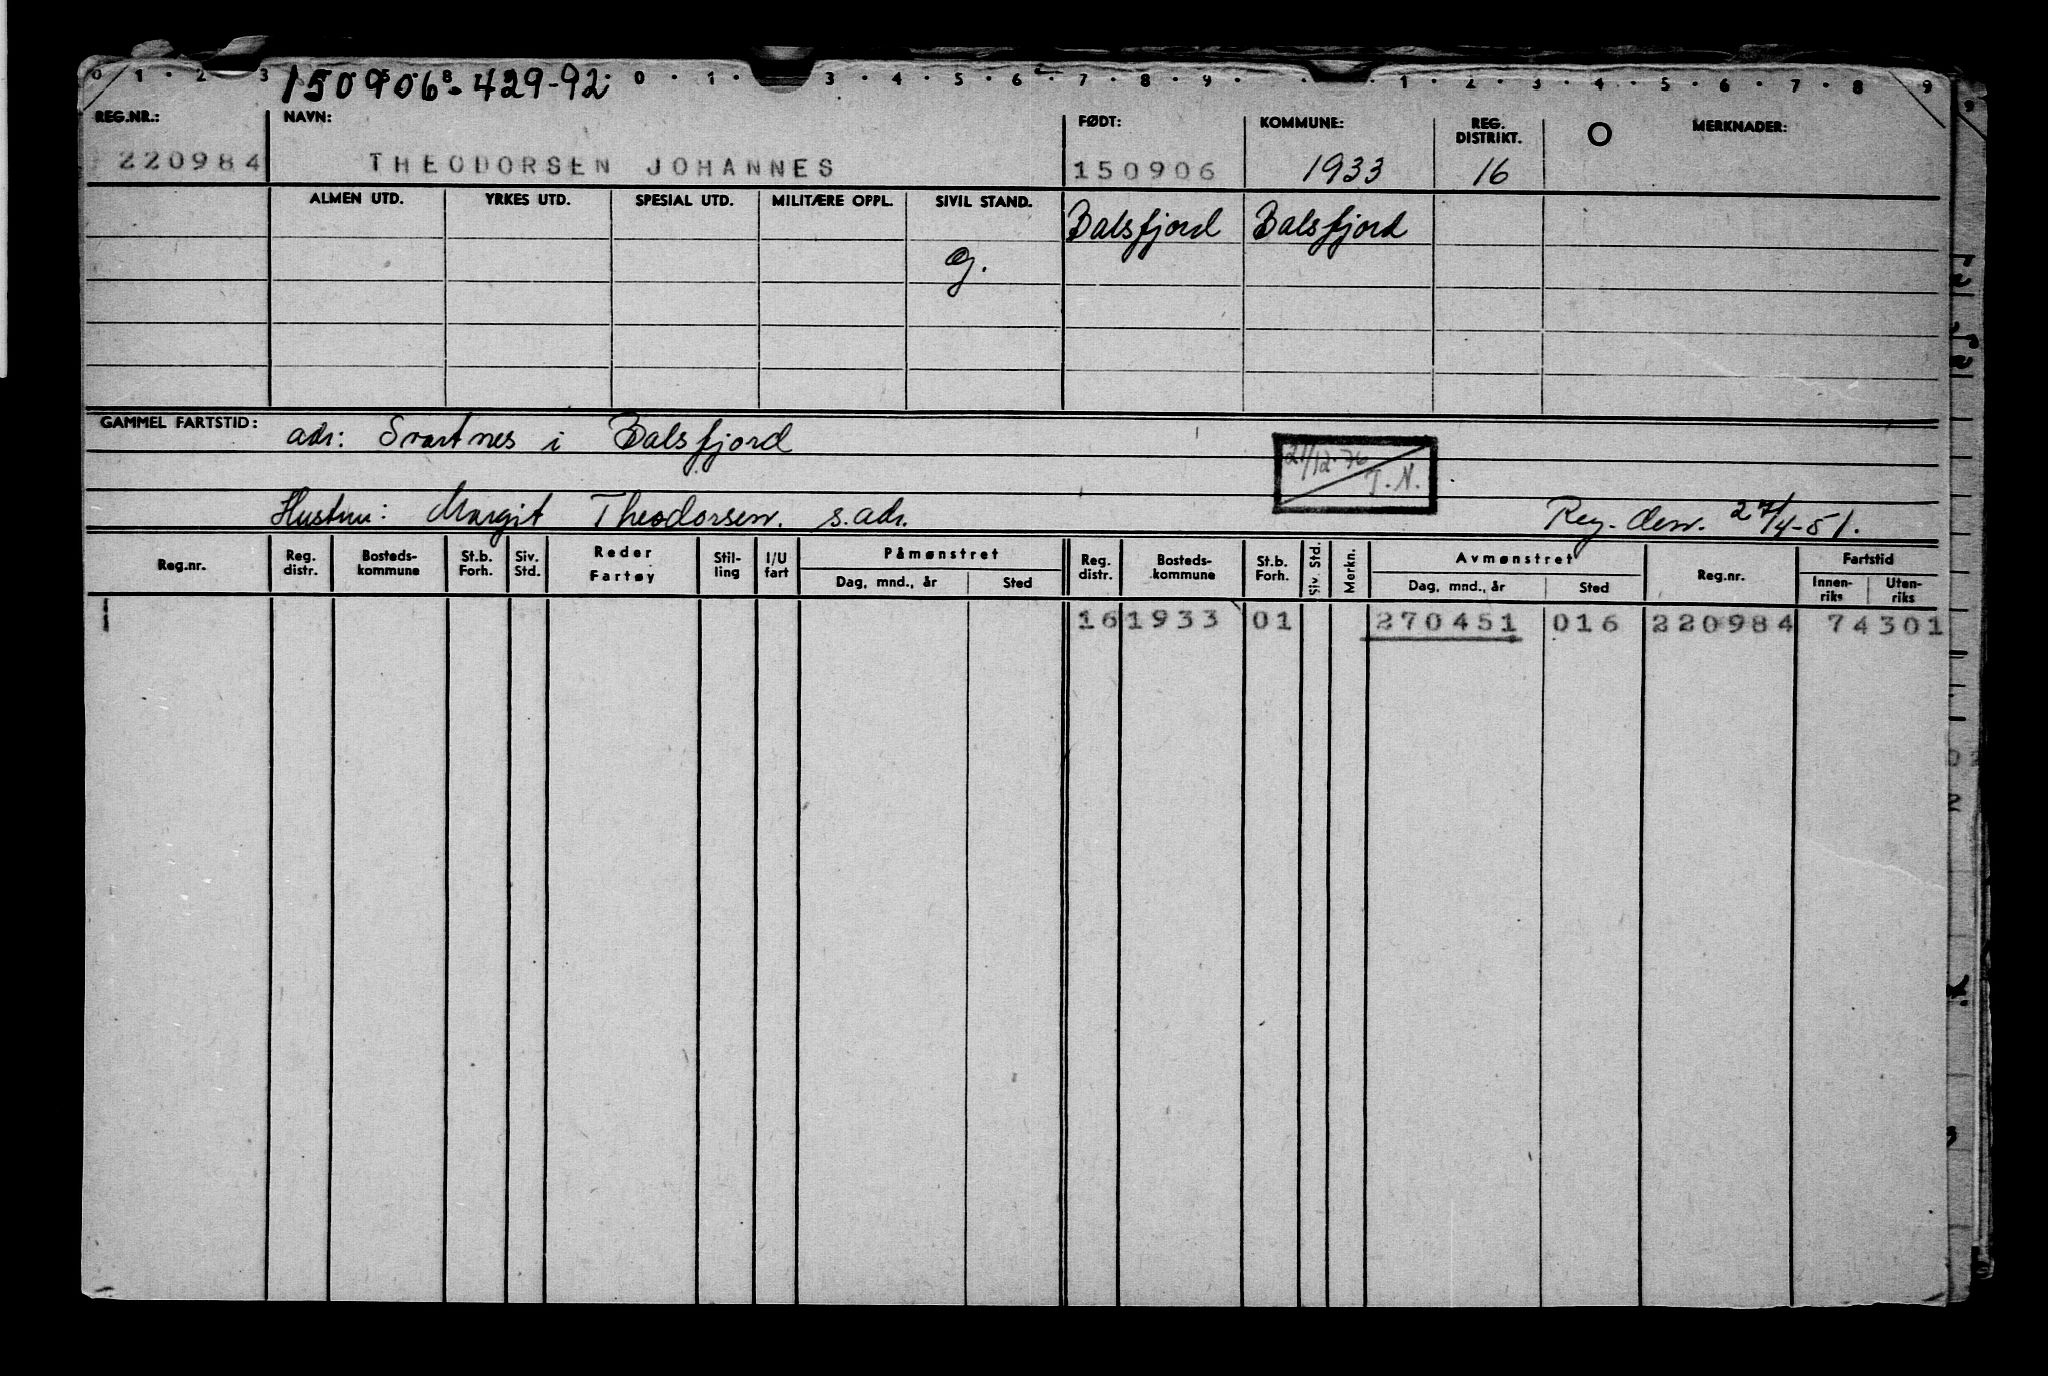 0 1 · 2 · 3 150906-429-92 0 · 1 · 3 · 4 · 5 · 6 · 7 · 8 · 9 · 1 · 2 · 3 · 4 · 5 · 6 · 7 · 8 · 9
REG.NR.: NAVN: FØDT: KOMMUNE: REG. DISTRIKT. MERKNADER:
220984 THEODORSEN JOHANNES 150906 1933 16
ALMEN UTD. YRKES UTD. SPESIAL UTD. MILITÆRE OPPL. SIVIL STAND. Balsfjord Balsfjord
g.
GAMMEL FARTSTID: adr: Svartnes i Balsfjord
21/12-76 T.N.
Hustru: Margit Theodorsen. s. adr. Reg. den. 27/4-51.
Reg.nr. Reg. distr. Bosteds-kommune St.b. Forh. Siv. Std. Reder Fartøy Stil-ling I/U fart Påmønstret Dag, mnd., år Sted Reg. distr. Bosteds-kommune St.b. Forh. Siv. Std. Merkn. Avmønstret Dag, mnd., år Sted Reg.nr. Fartstid Innen-riks Uten-riks
16 1933 01 270451 016 220984 74301